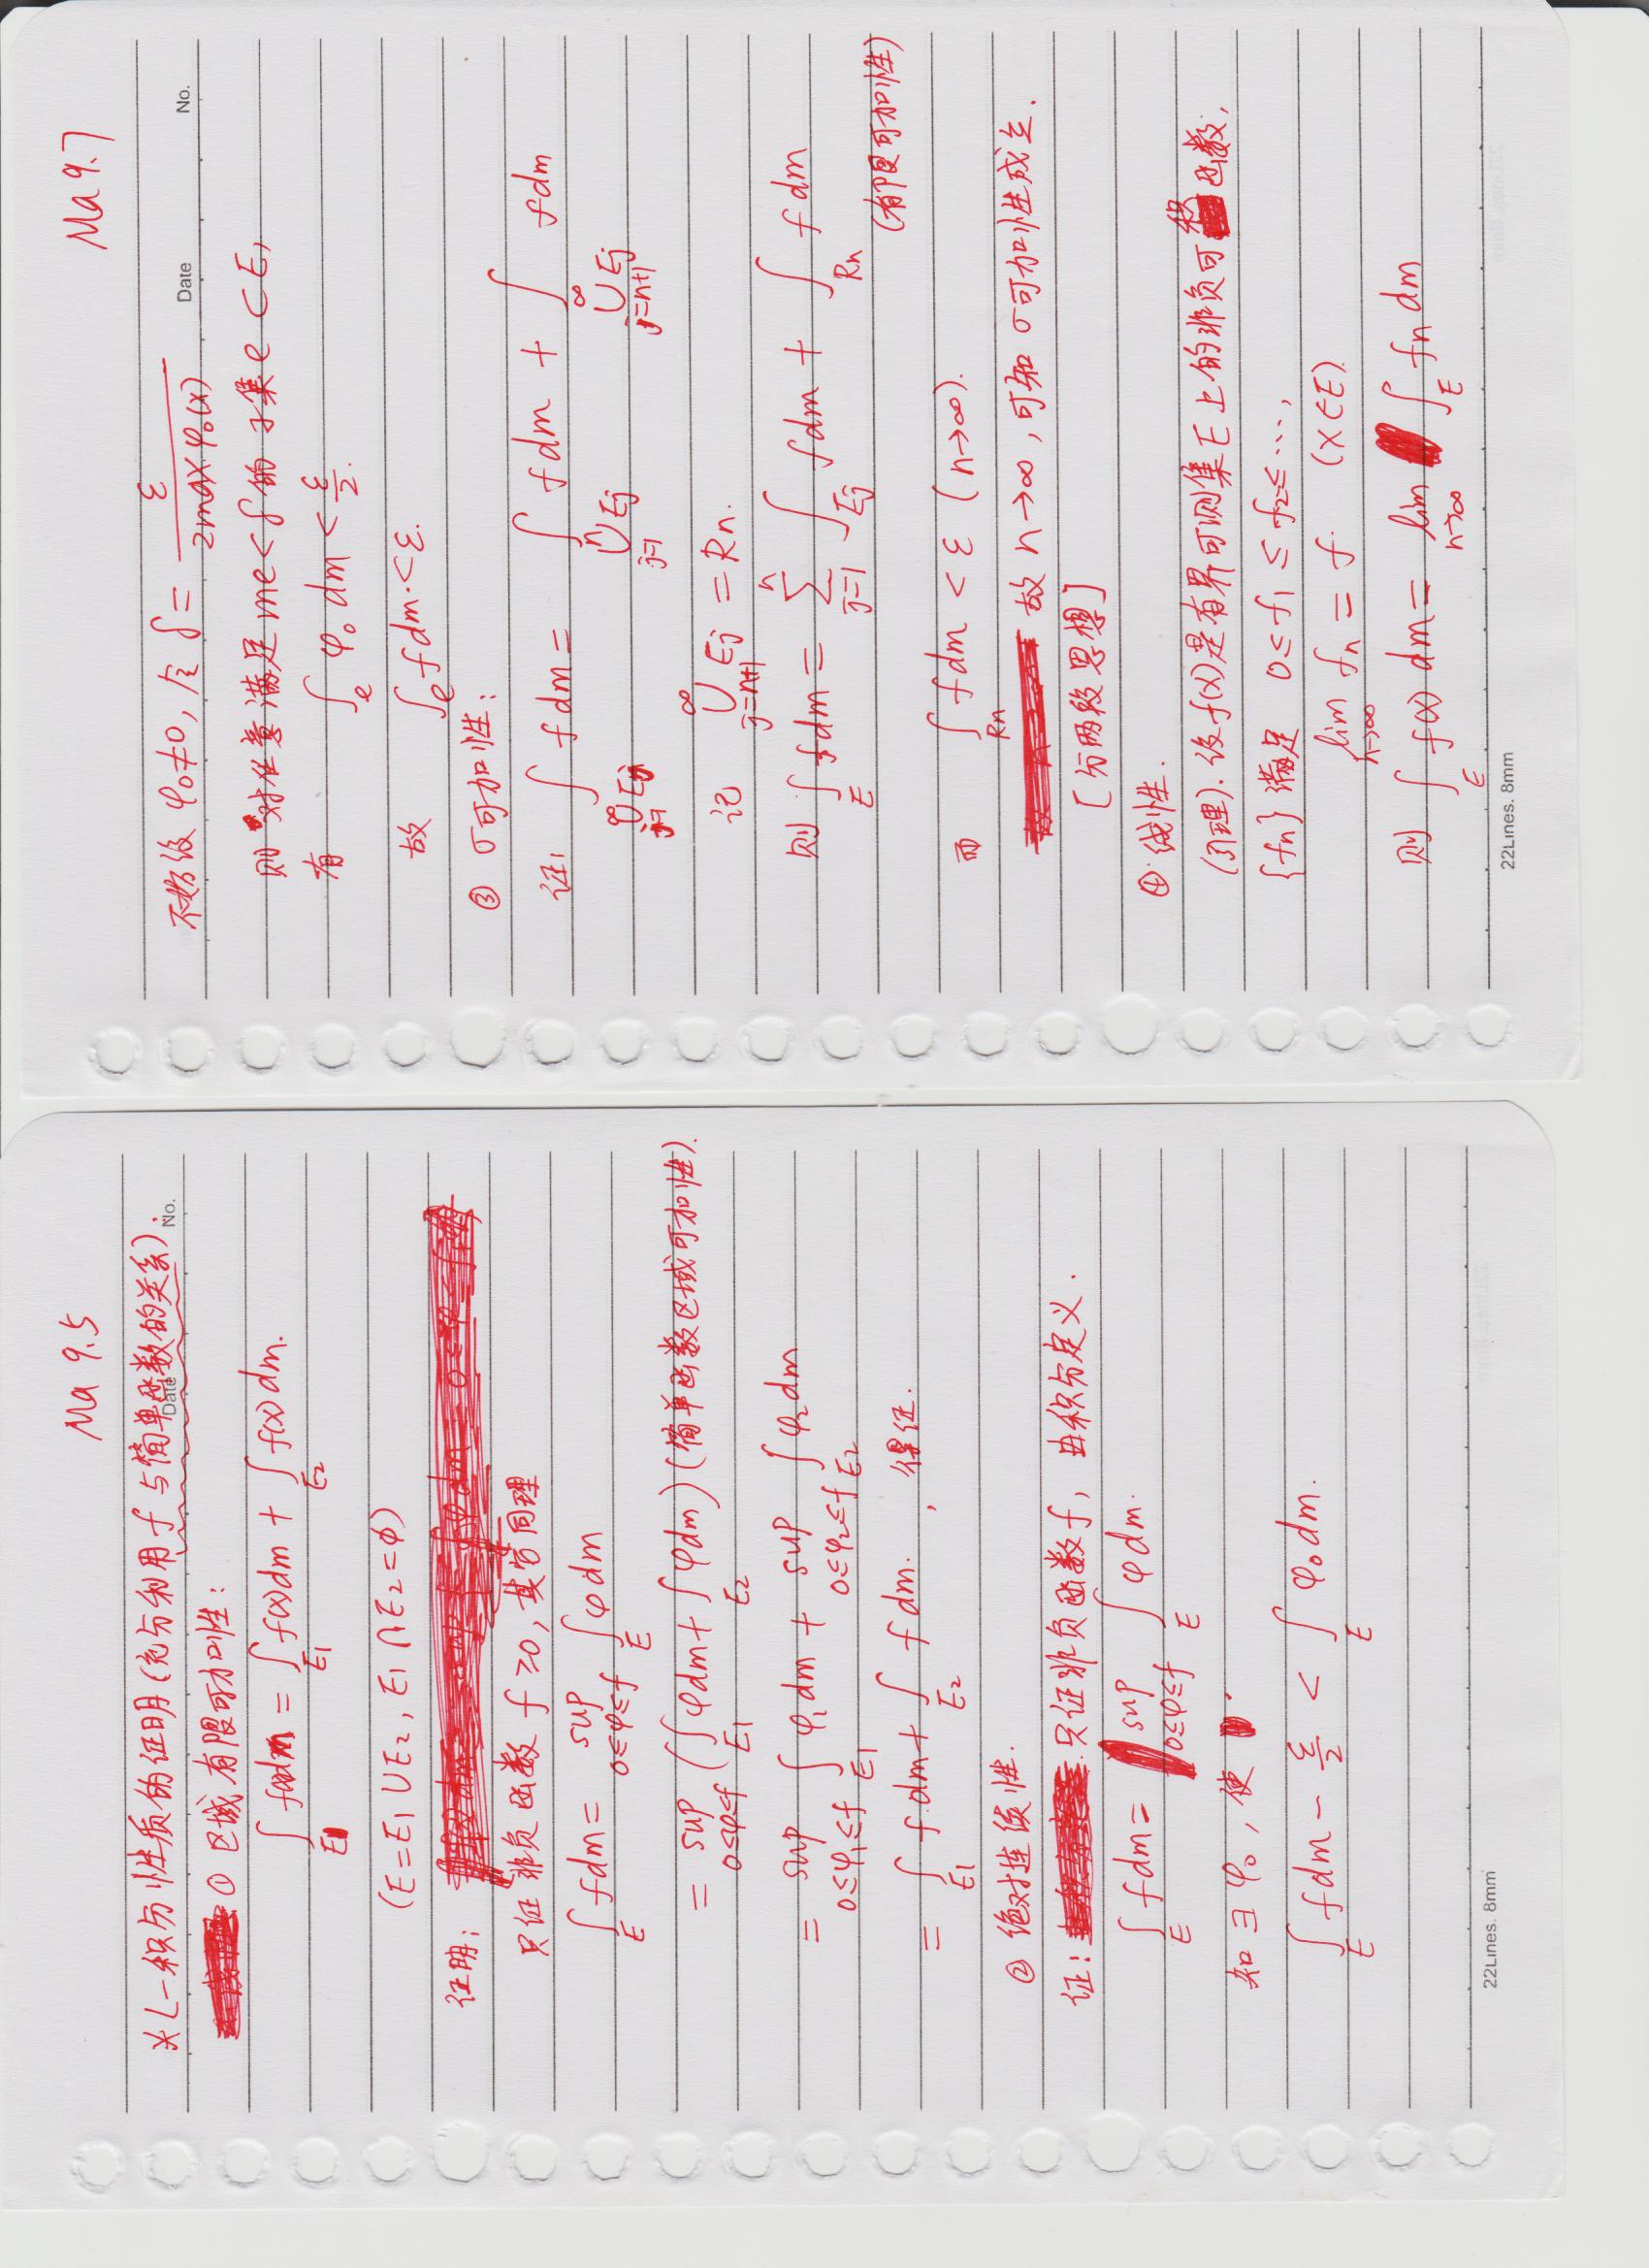 Ma 9.5
* L-积分性质的证明(充分利用f与简单函数的关系).
Date No.
① 区域有限可加性:
∫_E f(x)dm = ∫_{E₁} f(x)dm + ∫_{E₂} f(x)dm.
(E=E₁∪E₂, E₁∩E₂=∅)
证明:
只证非负函数 f≥0, 其它同理
∫_E fdm = sup_{0≤φ≤f} ∫_E φdm
= sup_{0≤φ≤f} (∫_{E₁} φdm + ∫_{E₂} φdm) (简单函数区域可加性).
= sup_{0≤φ₁≤f} ∫_{E₁} φ₁dm + sup_{0≤φ₂≤f} ∫_{E₂} φ₂dm
= ∫_{E₁} f dm + ∫_{E₂} f dm. , 得证.
② 绝对连续性.
证: 只证非负函数f, 由积分定义.
∫_E fdm = sup_{0≤φ≤f} ∫_E φdm.
知∃φ₀, 使
∫_E fdm - ε/2 < ∫_E φ₀dm.
22Lines. 8mm
Ma 9.7
不妨设 φ₀≠0, 令 δ = ε/(2max φ₀(x))
Date No.
则对任意满足me<δ的子集e⊂E,
有 ∫_e φ₀ dm < ε/2.
故 ∫_e fdm<ε.
③ σ可加性:
证: ∫_{⋃_{j=1}^∞ Ej} fdm = ∫_{⋃_{j=1}^n Ej} fdm + ∫_{⋃_{j=n+1}^∞ Ej} fdm
记 ⋃_{j=n+1}^∞ Ej = Rn.
则 ∫_E fdm = Σ_{j=1}^n ∫_{Ej} fdm + ∫_{Rn} fdm
(有限可加性)
而 ∫_{Rn} fdm < ε (n→∞).
故 n→∞, 可知σ可加性成立.
[分两段思想]
④ 线性.
(引理). 设f(x)是有界可测集E上的非负可积函数,
{fn}满足 0≤f₁≤f₂≤…,
lim_{n→∞} fn = f. (x∈E).
则 ∫_E f(x) dm = lim_{n→∞} ∫_E fn dm
22Lines. 8mm